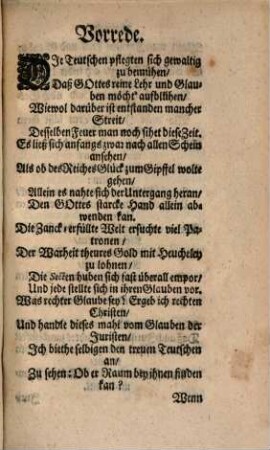 Vorrede.
DIe Teutschen pflegten sich gewaltig
zu bemühen/
Daß GOttes reine Lehr und Glau-
ben möcht aufblühen/
Wiewol darüber ist entstanden mancher
Streit/
Desselben Feuer man noch sihet diese Zeit.
Es ließ sich anfangs zwar nach allen Schein
ansehen/
Als ob des Reiches Glück zum Gipffel wolte
gehen/
Allein es nahte sich der Untergang heran/
Den GOttes starcke Hand allein ab-
wenden kan.
Die Zanck-erfüllte Welt ersuchte viel Pa-
tronen/
Der Warheit theures Gold mit Heucheley
zu lohnen/
Die Secten huben sich fast überall empor/
Und jede stellte sich in ihren Glauben vor.
Was rechter Glaube sey? Ergeb ich rechten
Christen/
Und handle dieses mahl vom Glauben der
Juristen/
Ich biethe selbigen den treuen Teutschen
an/
Zu sehen: Ob er Raum bey ihnen finden
kan?
Wenn